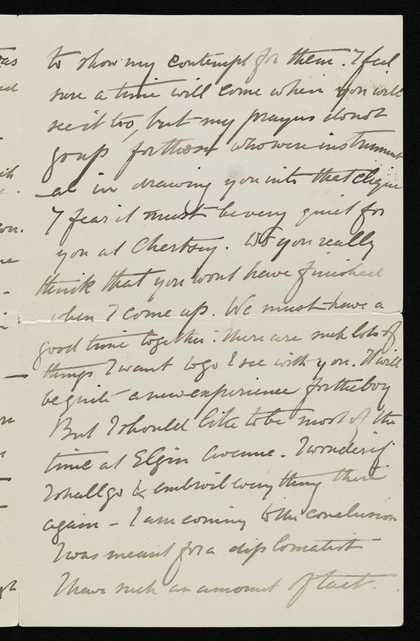 to show my contempt for them. I feel
sure a time will come when you will
see it too, but my prayers do not
go up for those who were instrument
-al in drawing you into that clique
I fear it must be very quiet for
you at Chertsey. Do you really
think that you wont have finished
when I come up. We must have a
good time together. There are such lots of
things I want to go & see with you. It will
be quite a new experience for the boy
But I should like to be most of the
time at Elgin Avenue. I wonder if
I shall go & embroil everything there
again - I am coming to the conclusion
I was meant for a diplomatist
I have such an amount of tact.